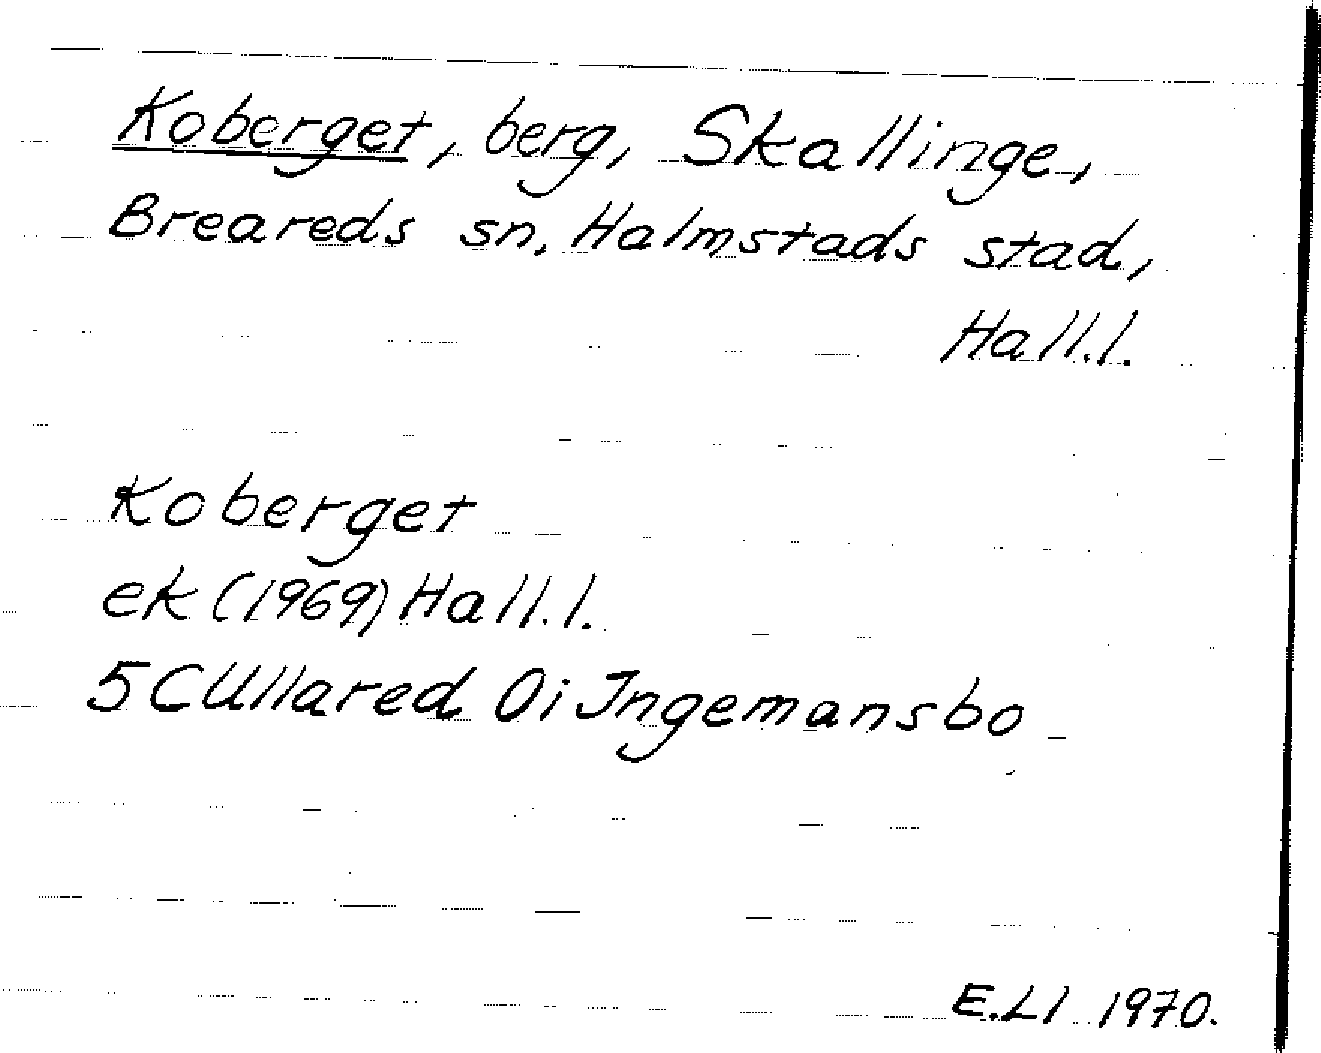 Koberget, berg, Skallinge,
Breareds sn, Halmstads stad,
Hall.l.
Koberget
ek (1969) Hall.l.
5C Ullared 0i Ingemansbo
E.Ll 1970.